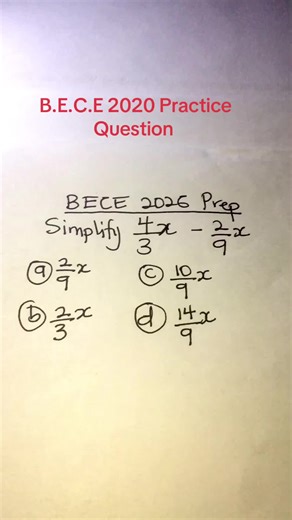 B.E.C.E 2020 Practice
Question
BECE 2026 Prep
Simplify 4/3 x - 2/9 x
(a) 2/9 x (c) 10/9 x
(b) 2/3 x (d) 14/9 x